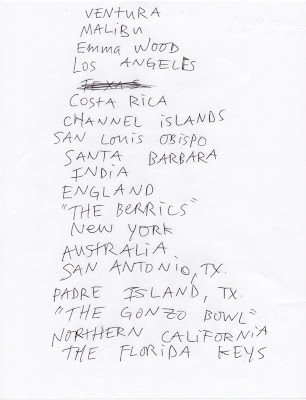 VENTURA
MALIBU
Emma WOOD
LOS ANGELES
TEXAS
COSTA RICA
CHANNEL ISLANDS
SAN LOUIS OBISPO
SANTA BARBARA
INDIA
ENGLAND
"THE BERRICS"
NEW YORK
AUSTRALIA
SAN ANTONIO, TX.
PADRE ISLAND, TX.
"THE GONZO BOWL"
NORTHERN CALIFORNIA
THE FLORIDA KEYS